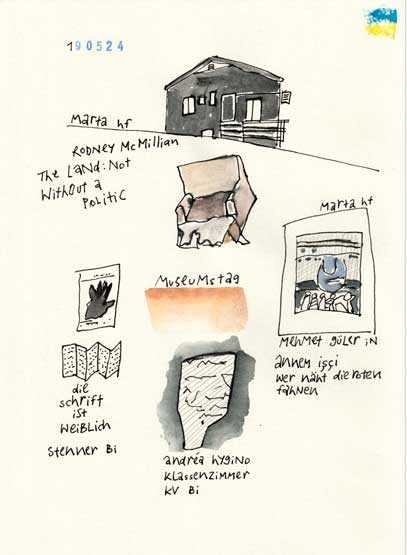 190524
Marta hf
Rodney McMillian
The Land: Not
Without a
Politic
Marta hf
Museumstag
Mehmet Güler in
annem işçi
wer näht die roten
fahnen
die
schrift
ist
weiblich
Stenner Bi
andréa hygino
Klassenzimmer
KV Bi